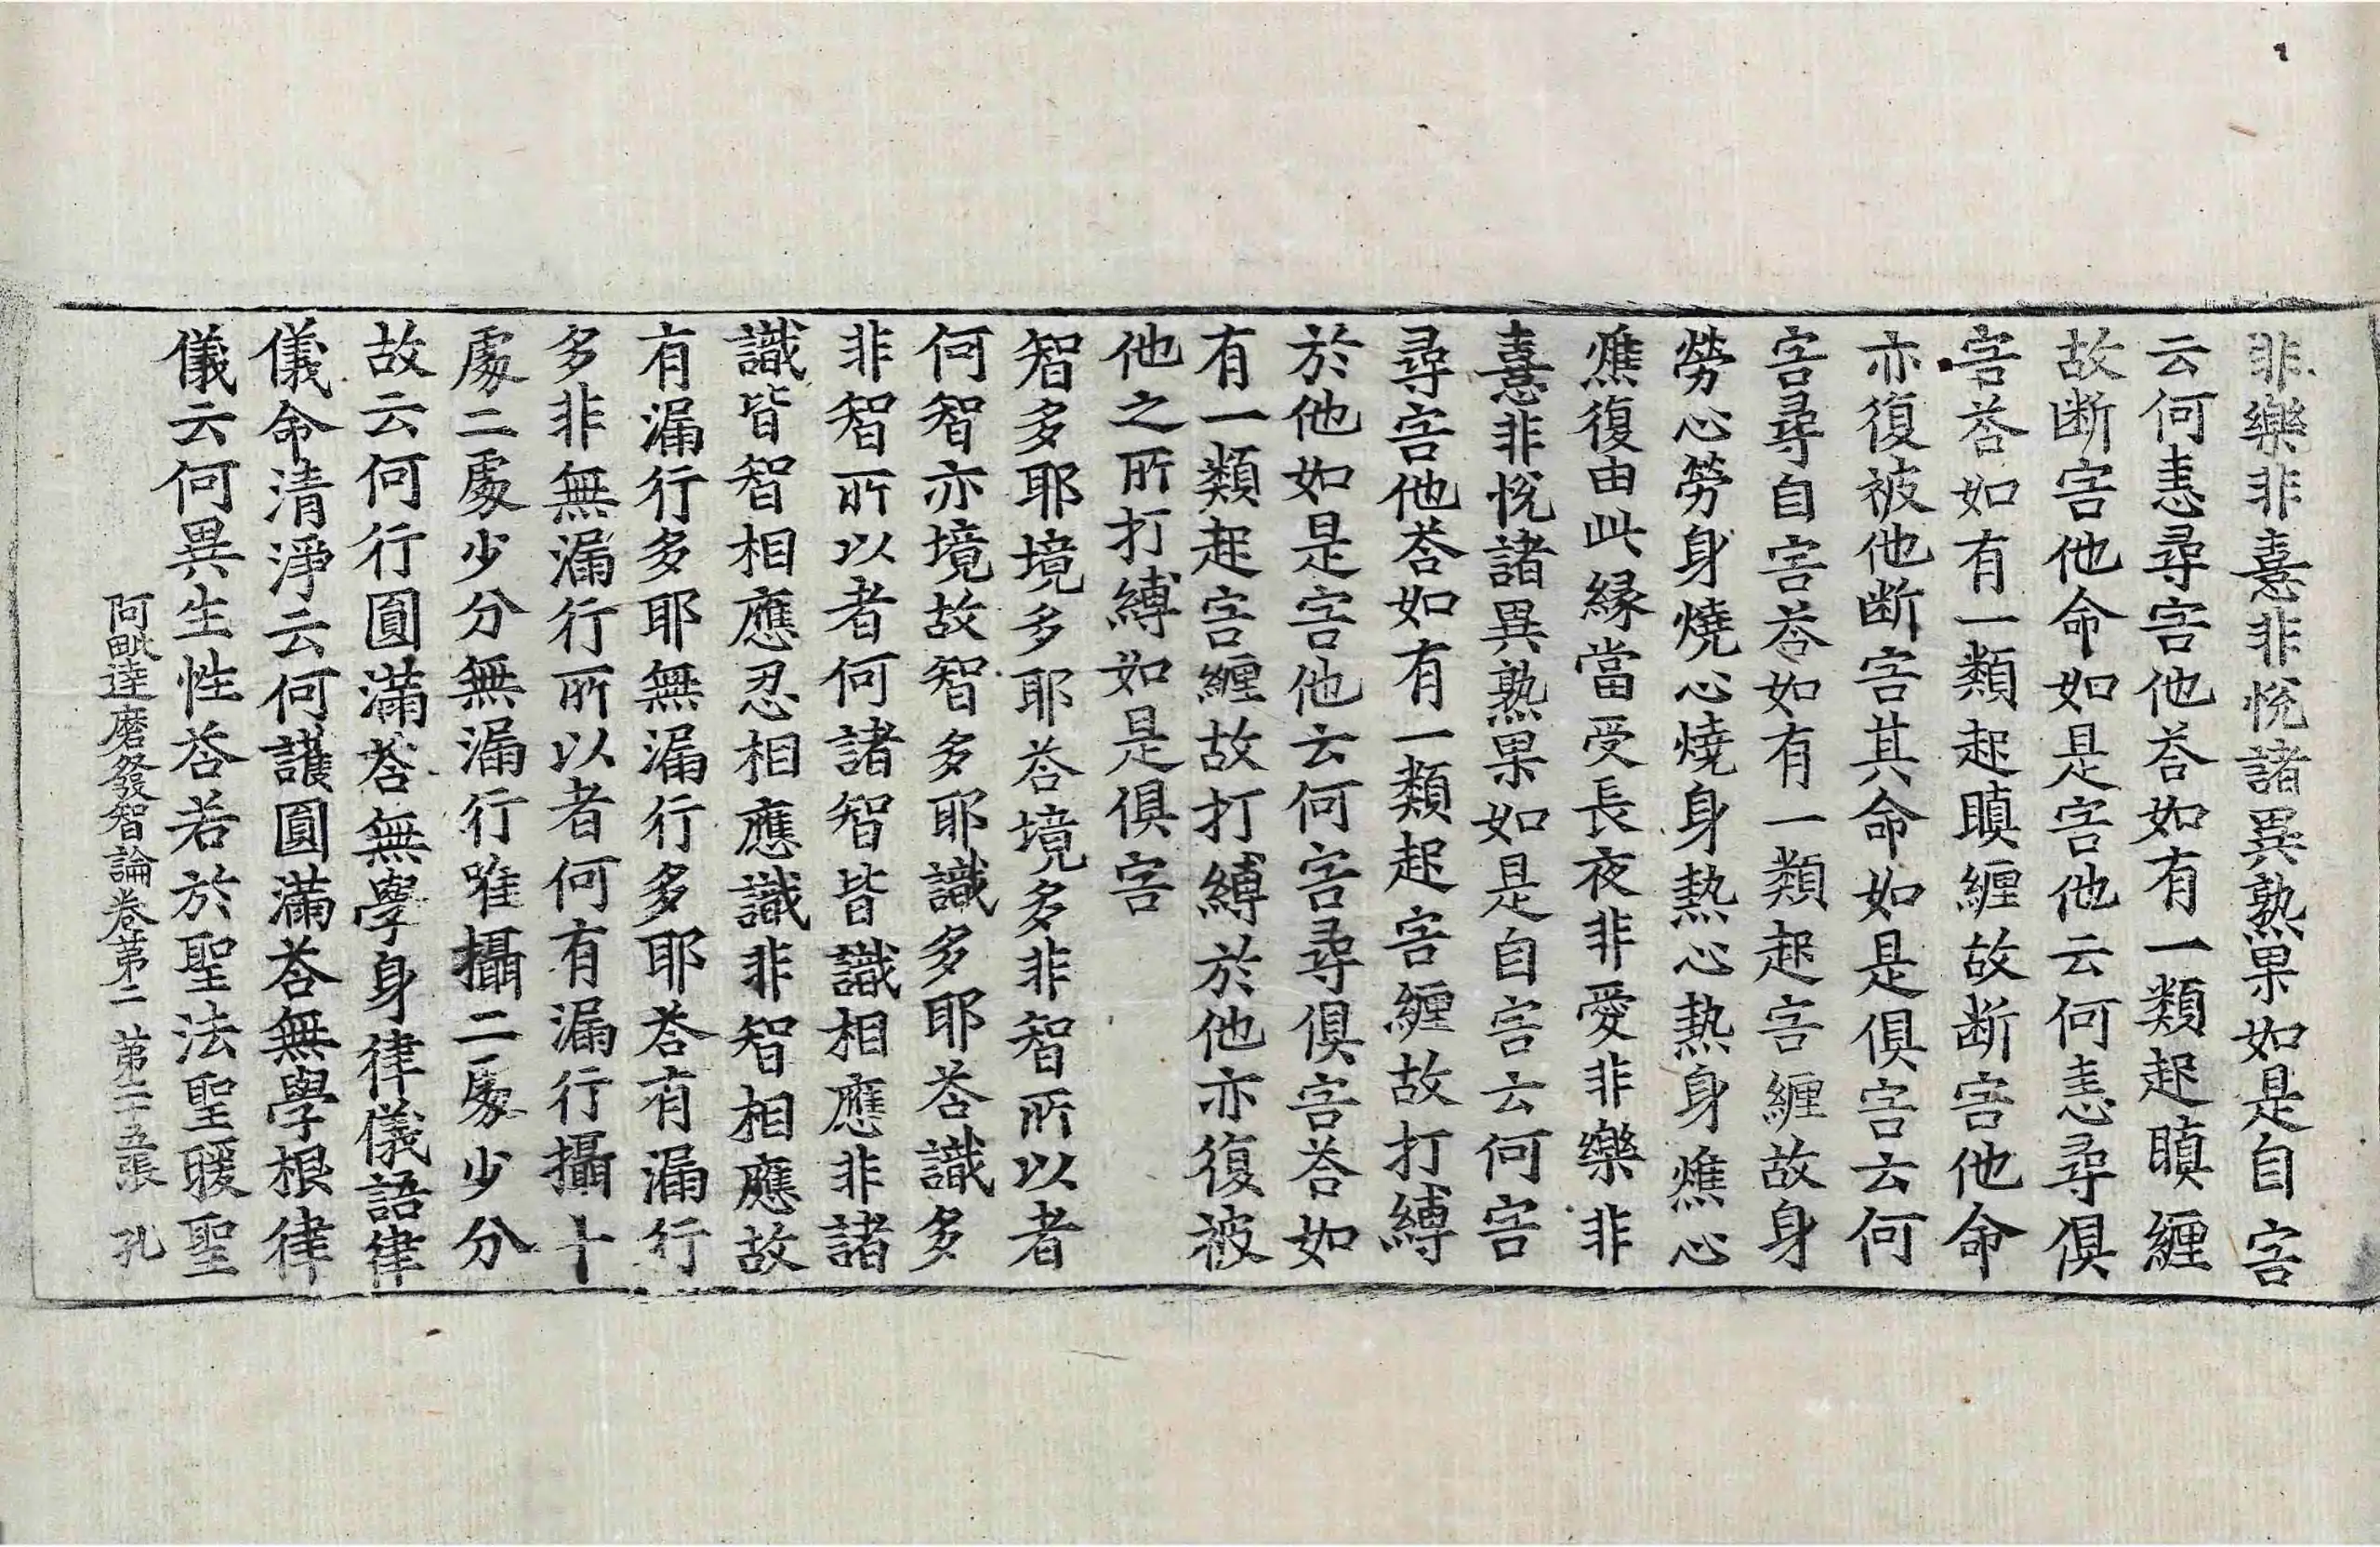 非樂非憙非悅諸異熟果如是自害
云何恚尋害他荅如有一類起瞋纏
故断害他命如是害他云何恚尋俱
害荅如有一類起瞋纏故断害他命
亦復被他断害其命如是俱害云何
害尋自害荅如有一類起害纏故身
勞心勞身燒心燒身熱心熱身燋心
燋復由此緣當受長夜非愛非樂非
憙非悅諸異熟果如是自害云何害
尋害他荅如有一類起害纏故打縛
於他如是害他云何害尋俱害荅如
有一類起害纏故打縛於他亦復被
他之所打縛如是俱害
智多耶境多耶荅境多非智所以者
何智亦境故智多耶識多耶荅識多
非智所以者何諸智皆識相應非諸
識皆智相應忍相應識非智相應故
有漏行多耶無漏行多耶荅有漏行
多非無漏行所以者何有漏行攝十
處二處少分無漏行唯攝二處少分
故云何行圓滿荅無學身律儀語律
儀命清淨云何護圓滿荅無學根律
儀云何異生性荅若於聖法聖暖聖
阿毗達磨發智論卷第二 第二十五張 孔